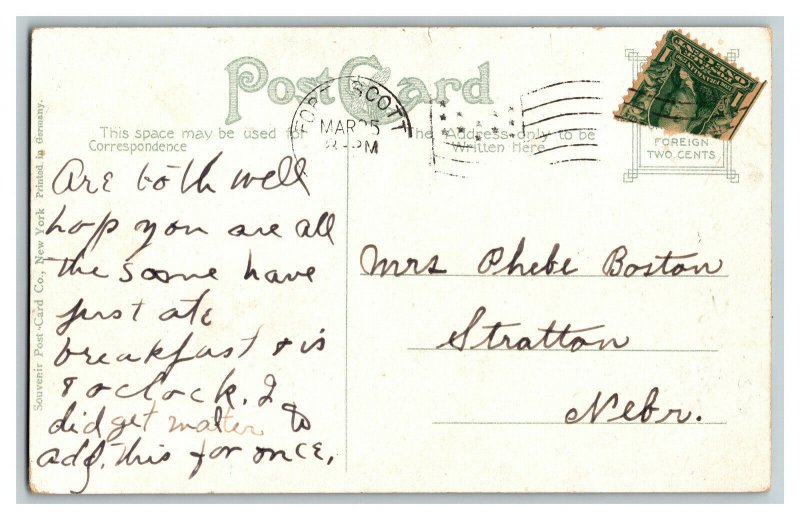 Post Card
This space may be used for
Correspondence
The Address only to be
Written Here
FORT SCOTT
MAR 25
8-PM
1 1
FOREIGN
TWO CENTS
Souvenir Post Card Co., New York Printed in Germany.
Are both well
hop you are all
the same have
just ate
breakfast & is
8 oclock. I
did get matter to
add. this for once.
Mrs Phebe Boston
Stratton
Nebr.